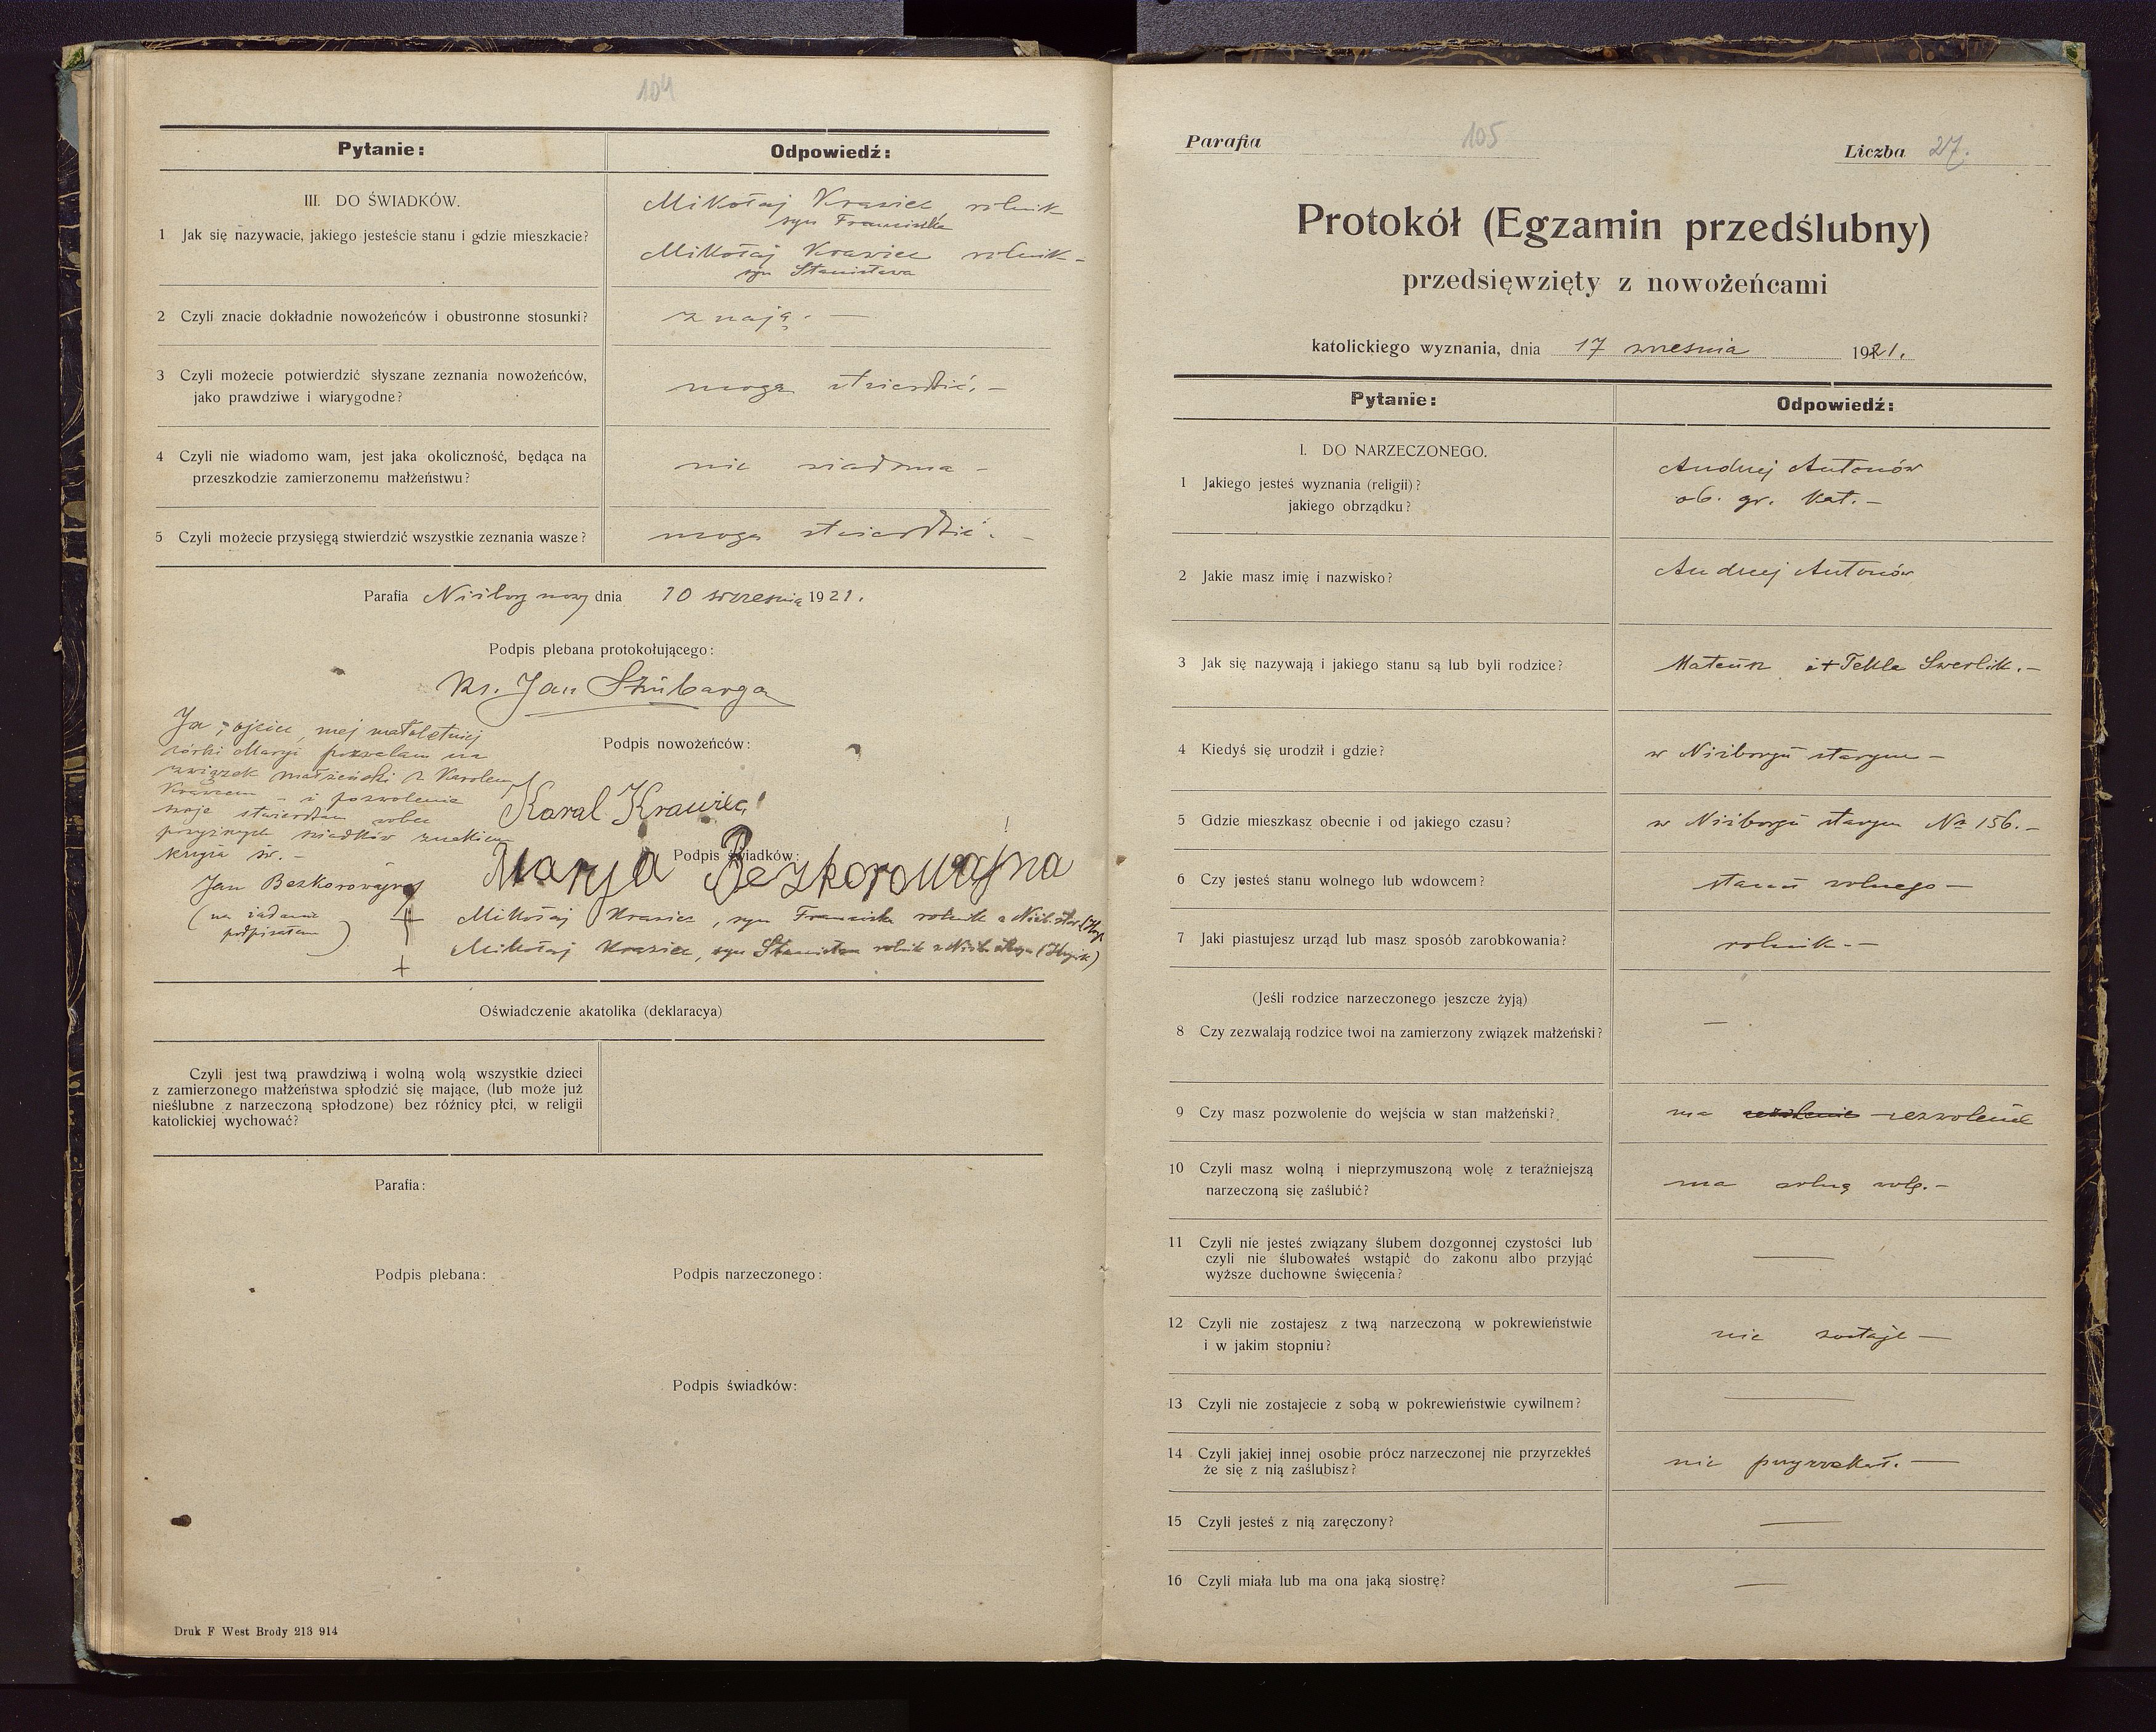 104
Pytanie:
Odpowiedź:
III. DO ŚWIADKÓW.
1 Jak się nazywacie, jakiego jesteście stanu i gdzie mieszkacie?
Mikołaj Krawiec rolnik
syn Franciszka
Mikołaj Krawiec rolnik -
syn Stanisława
2 Czyli znacie dokładnie nowożeńców i obustronne stosunki?
znają. —
3 Czyli możecie potwierdzić słyszane zeznania nowożeńców,
jako prawdziwe i wiarygodne?
mogą stwierdzić. —
4 Czyli nie wiadomo wam, jest jaka okoliczność, będąca na
przeszkodzie zamierzonemu małżeństwu?
nie wiadoma -
5 Czyli możecie przysięgą stwierdzić wszystkie zeznania wasze?
mogą stwierdzić. -
Parafia Niżborg nowy dnia 10 września 1921.
Podpis plebana protokołującego:
Ks. Jan Szubarga
Ja, ojciec, mej małoletniej
córki Maryi pozwalam na
związek małżeński z Karolem
Krawcem - i pozwolenie
moje stwierdzam wobec
świadków znakiem
krzyża św. -
Jan Bezkorowajny
(na żądanie
podpisałem)
Podpis nowożeńców:
Karal Krawiec
Podpis świadków:
Marya Bezkorowajna
+ Mikołaj Krawiec, syn Franciszka rolnik z Niżb. star
+ Mikołaj Krawiec, syn Stanisława rolnik z Niżb.
Oświadczenie akatolika (deklaracya)
Czyli jest twą prawdziwą i wolną wolą wszystkie dzieci
z zamierzonego małżeństwa spłodzić się mające, (lub może już
nieślubne z narzeczoną spłodzone) bez różnicy płci, w religii
katolickiej wychować?
Parafia:
Podpis plebana:
Podpis narzeczonego:
Podpis świadków:
Druk F West Brody 213 914
Parafia
105
Liczba 27.
Protokół (Egzamin przedślubny)
przedsięwzięty z nowożeńcami
katolickiego wyznania, dnia 17 września 1921.
Pytanie:
Odpowiedź:
I. DO NARZECZONEGO.
1 Jakiego jesteś wyznania (religii)?
jakiego obrządku?
Andrzej Antonów
ob. gr. kat. -
2 Jakie masz imię i nazwisko?
Andrzej Antonów
3 Jak się nazywają i jakiego stanu są lub byli rodzice?
Mateusz i + Tekla Swerlik. -
4 Kiedyś się urodził i gdzie?
w Niżborgu starym —
5 Gdzie mieszkasz obecnie i od jakiego czasu?
w Niżborgu starym No 156. -
6 Czy jesteś stanu wolnego lub wdowcem?
stanu wolnego —
7 Jaki piastujesz urząd lub masz sposób zarobkowania?
rolnik - —
(Jeśli rodzice narzeczonego jeszcze żyją)
8 Czy zezwalają rodzice twoi na zamierzony związek małżeński?
—
9 Czy masz pozwolenie do wejścia w stan małżeński?
ma zezwolenie
10 Czyli masz wolną i nieprzymuszoną wolę z teraźniejszą
narzeczoną się zaślubić?
ma wolną wolę. -
11 Czyli nie jesteś związany ślubem dozgonnej czystości lub
czyli nie ślubowałeś wstąpić do zakonu albo przyjąć
wyższe duchowne święcenia?
—
12 Czyli nie zostajesz z twą narzeczoną w pokrewieństwie
i w jakim stopniu?
nie zostaje —
13 Czyli nie zostajecie z sobą w pokrewieństwie cywilnem?
—
14 Czyli jakiej innej osobie prócz narzeczonej nie przyrzekłeś
że się z nią zaślubisz?
nie przyrzekał. —
15 Czyli jesteś z nią zaręczony?
—
16 Czyli miała lub ma ona jaką siostrę?
—